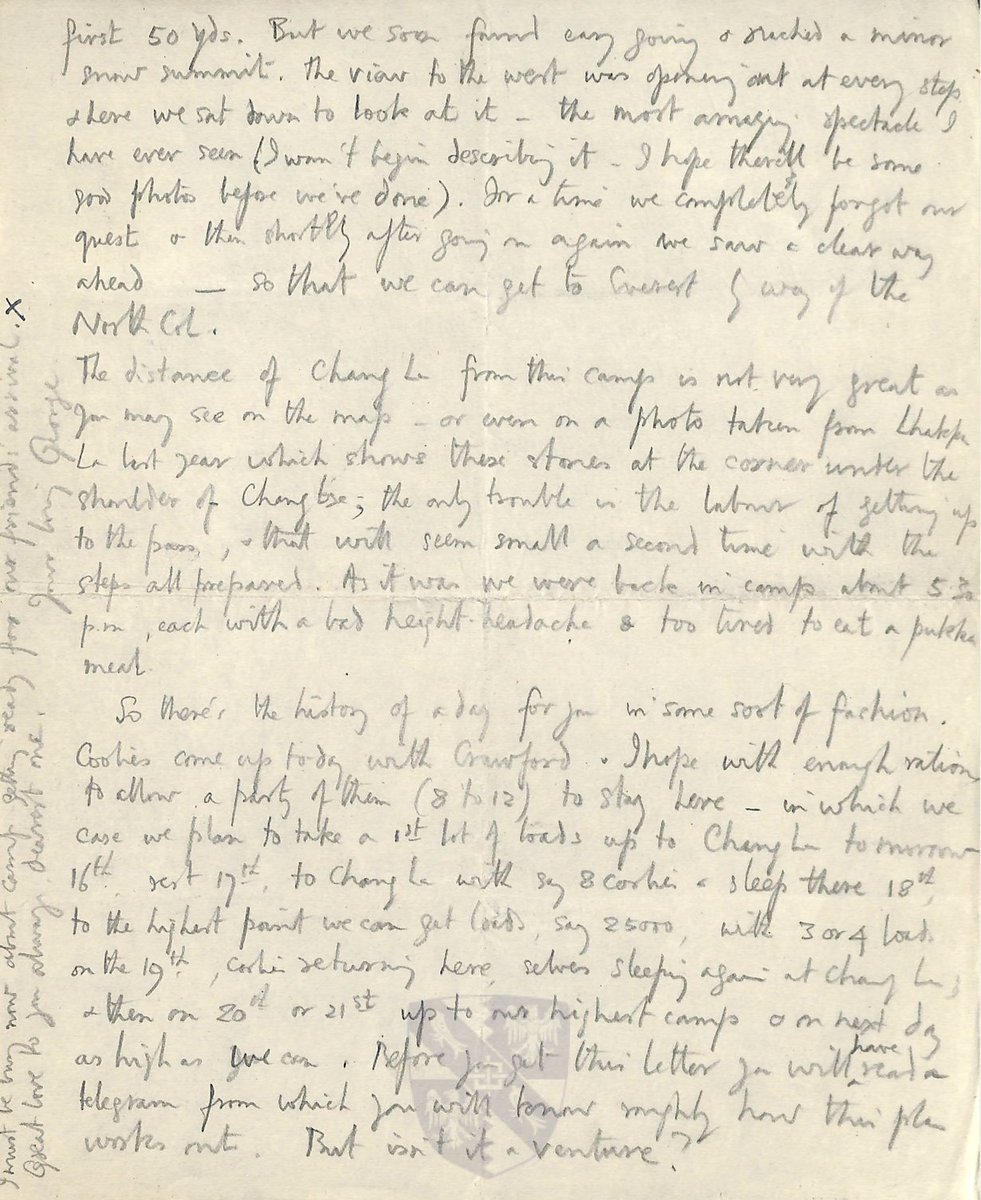 first 50 yds. But we soon found easy going & reached a minor
snow summit. The view to the west was opening out at every step
& here we sat down to look at it – the most amazing spectacle I
have ever seen (I won't begin describing it – I hope there'll be some
good photos before we've done). For a time we completely forgot our
quest & then shortly after going on again we saw a clear way
ahead — so that we can get to Everest by way of the
North Col.
The distance of Chang La from this camp is not very great as
you may see on the map – or even on a photo taken from Lhakpa
La last year which shows these stones at the corner under the
shoulder of Changtse; the only trouble is the labour of getting up
to the pass, & that will seem small a second time with the
steps all prepared. As it was we were back in camp about 5.30
p.m, each with a bad height-headache & too tired to eat a pukka
meal.
So there's the history of a day for you in some sort of fashion.
Coolies come up to-day with Crawford. I hope with enough rations
to allow a party of them (8 to 12) to stay here – in which we
case we plan to take a 1st lot of loads up to Chang La tomorrow
16th, rest 17th, to Chang La with say 8 coolies & sleep there 18th,
to the highest point we can get loads, say 25000, with 3 or 4 loads
on the 19th, coolies returning here, selves sleeping again at Chang La;
& then on 20th or 21st up to our highest camp & on next day
as high as we can. Before you get this letter you will have read a
telegram from which you will know roughly how this plan
works out. But isn't it a venture?
I must be busy now about camp getting ready for our friends' arrival. X
Great love to you always dearest one.
Your loving George